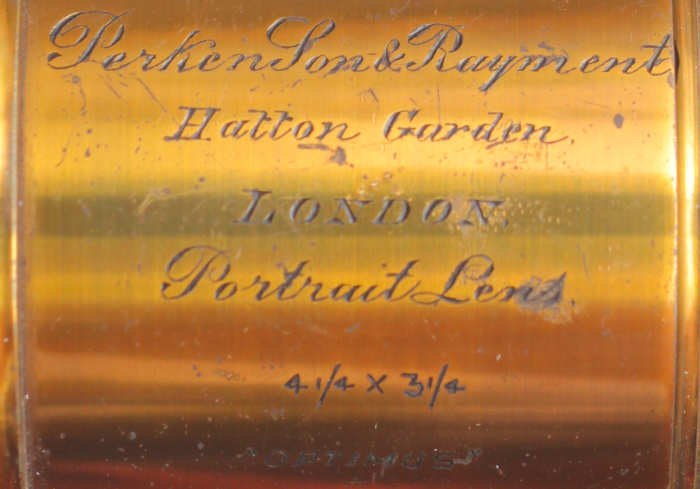 Perken Son & Rayment
Hatton Garden.
LONDON.
Portrait Lens.
4 1/4 x 3 1/4
"OPTIMUS"